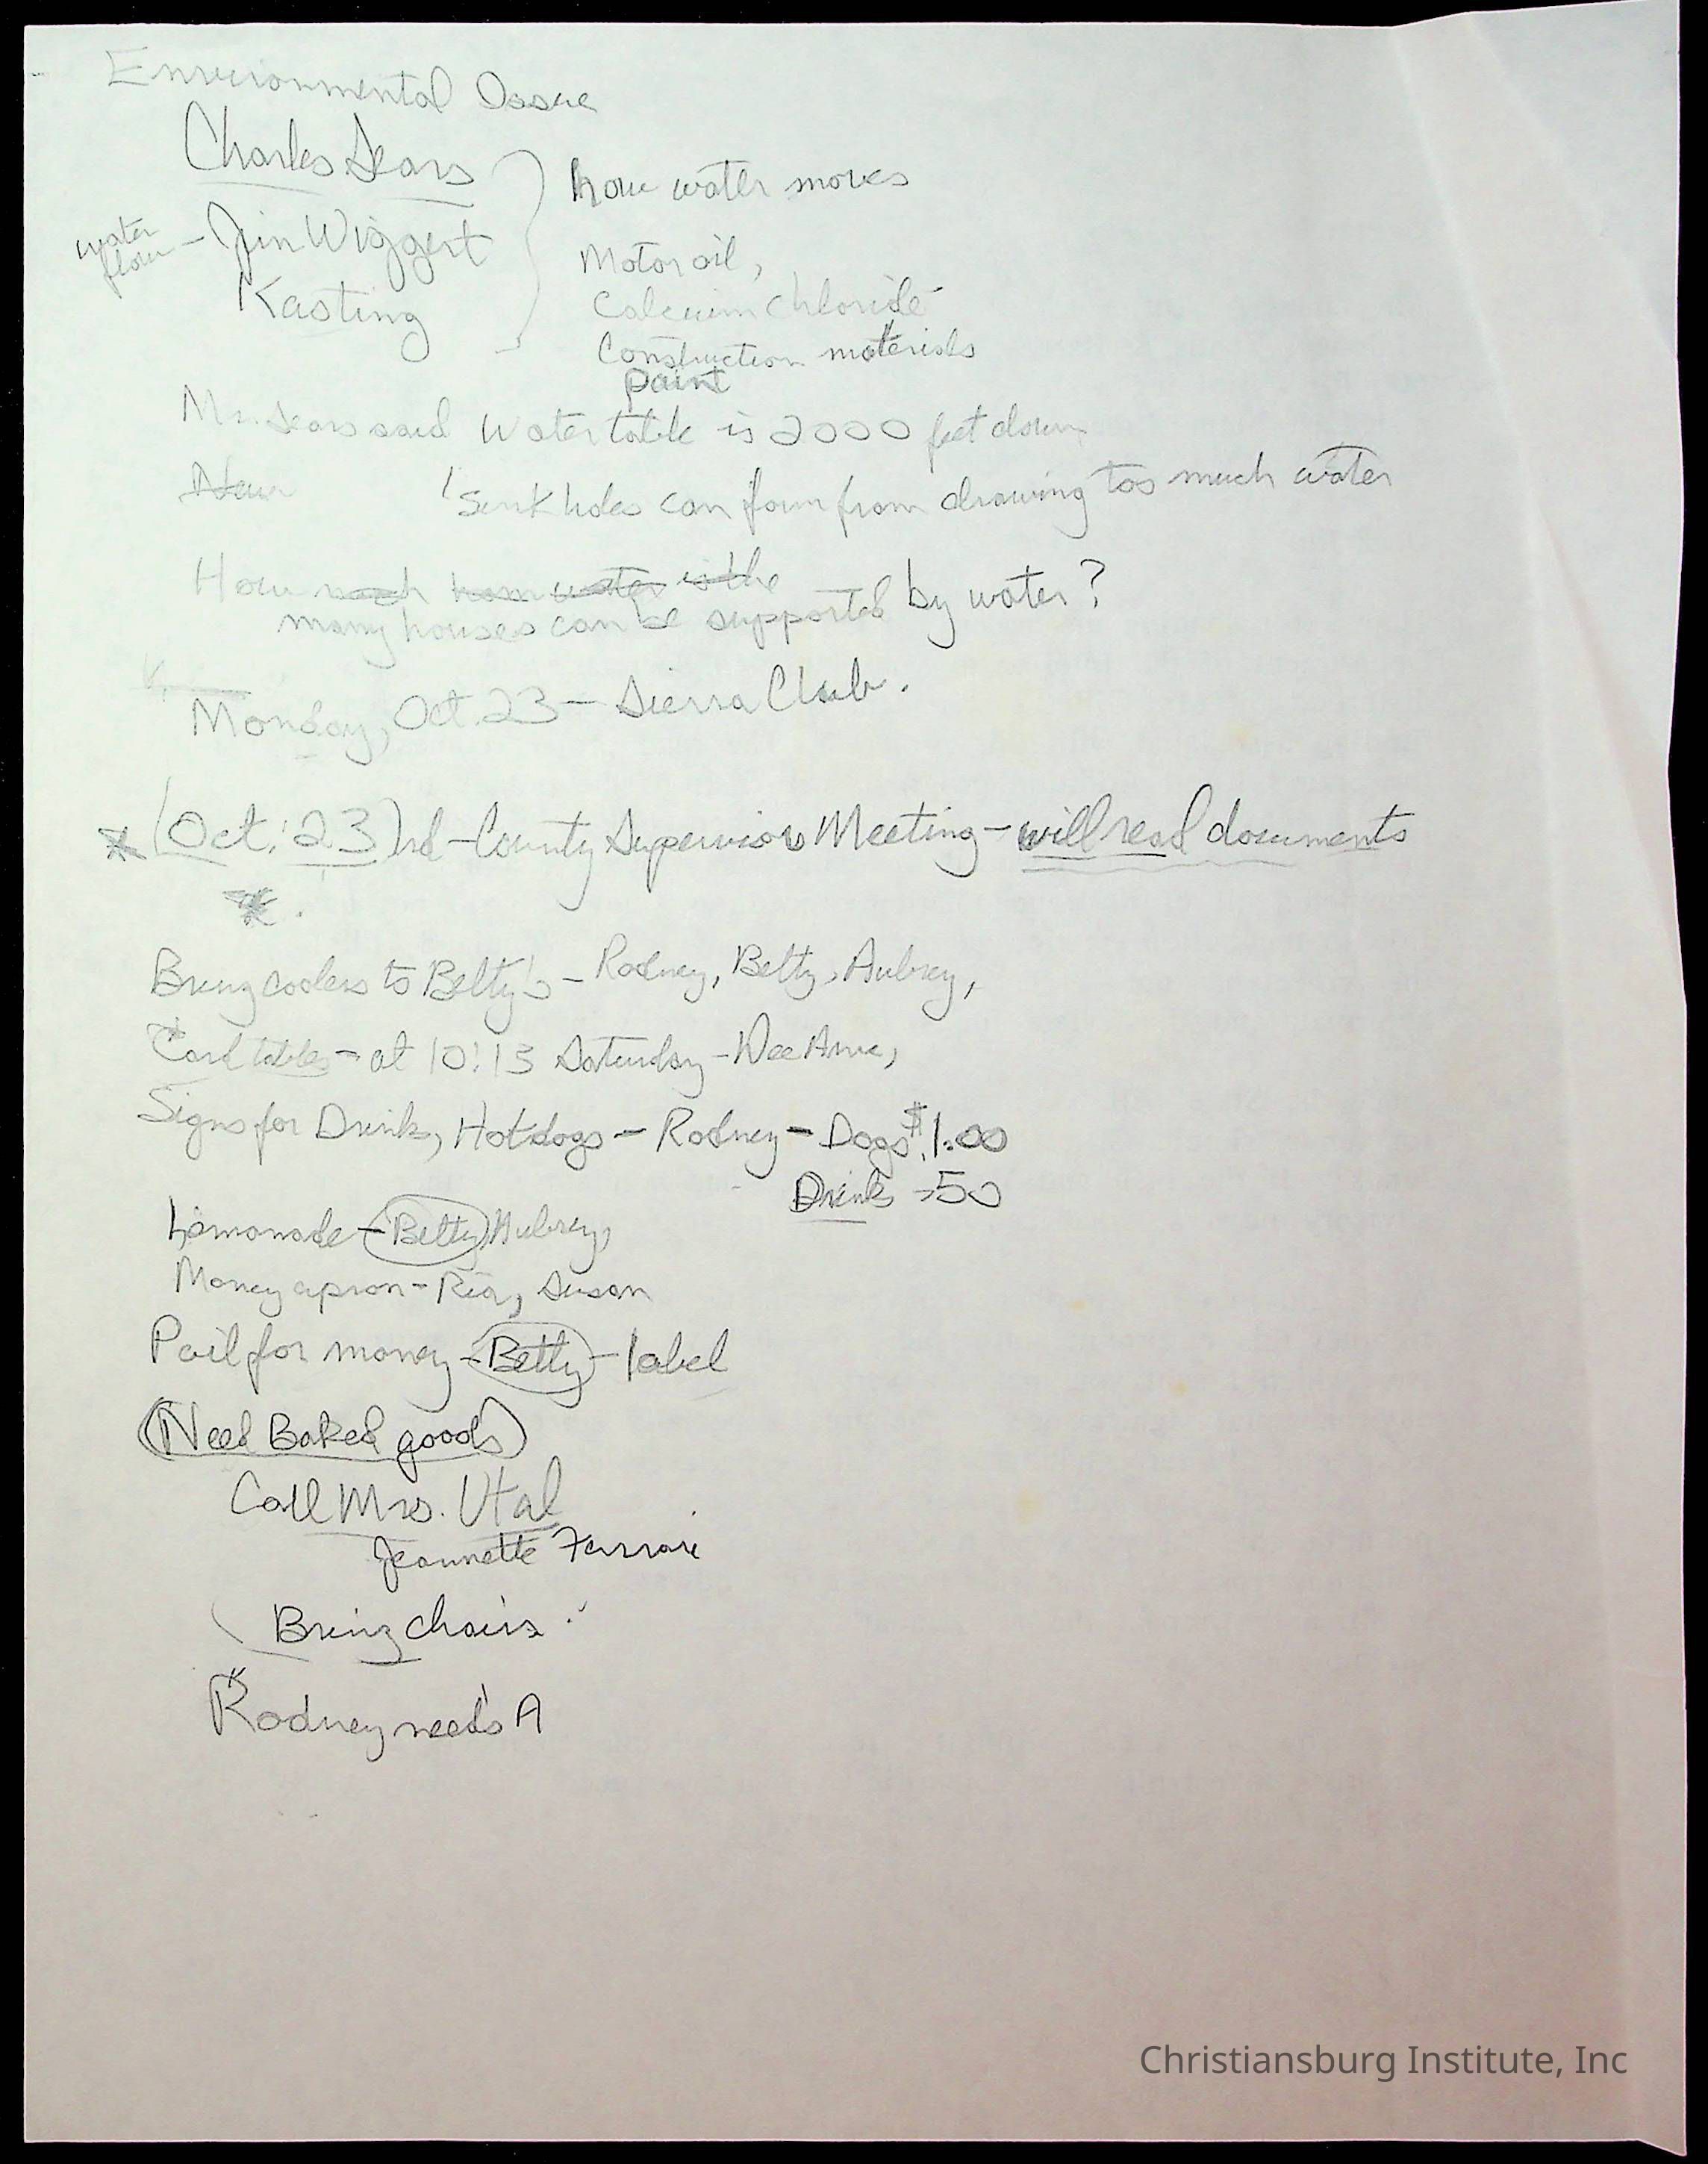 Environmental Issue
Charles Sears
how water moves
water flow - Jim Wiggert
Motor oil,
Kasting
Calcium chloride
Construction materials
paint
Mr. Sears said Water table is 2000 feet down
New
Sink holes can form from drawing too much water
How much how water is the
many houses can be supported by water?
Monday, Oct. 23 - Sierra Club.
* (Oct. 23)rd - County Supervisors Meeting - will read documents
*
Bring coolers to Betty's - Rodney, Betty, Aubrey,
Card tables - at 10:15 Saturday - Dee Ann,
Signs for Drink, Hotdogs - Rodney - Dogs $1.00
Drinks .50
Lemonade - Betty, Aubrey,
Money apron - Ria, Susan
Pail for money - Betty - label
(Need Baked goods)
Call Mrs. Utal
Jeannette Ferrari
Bring chairs.
Rodney needs A
Christiansburg Institute, Inc